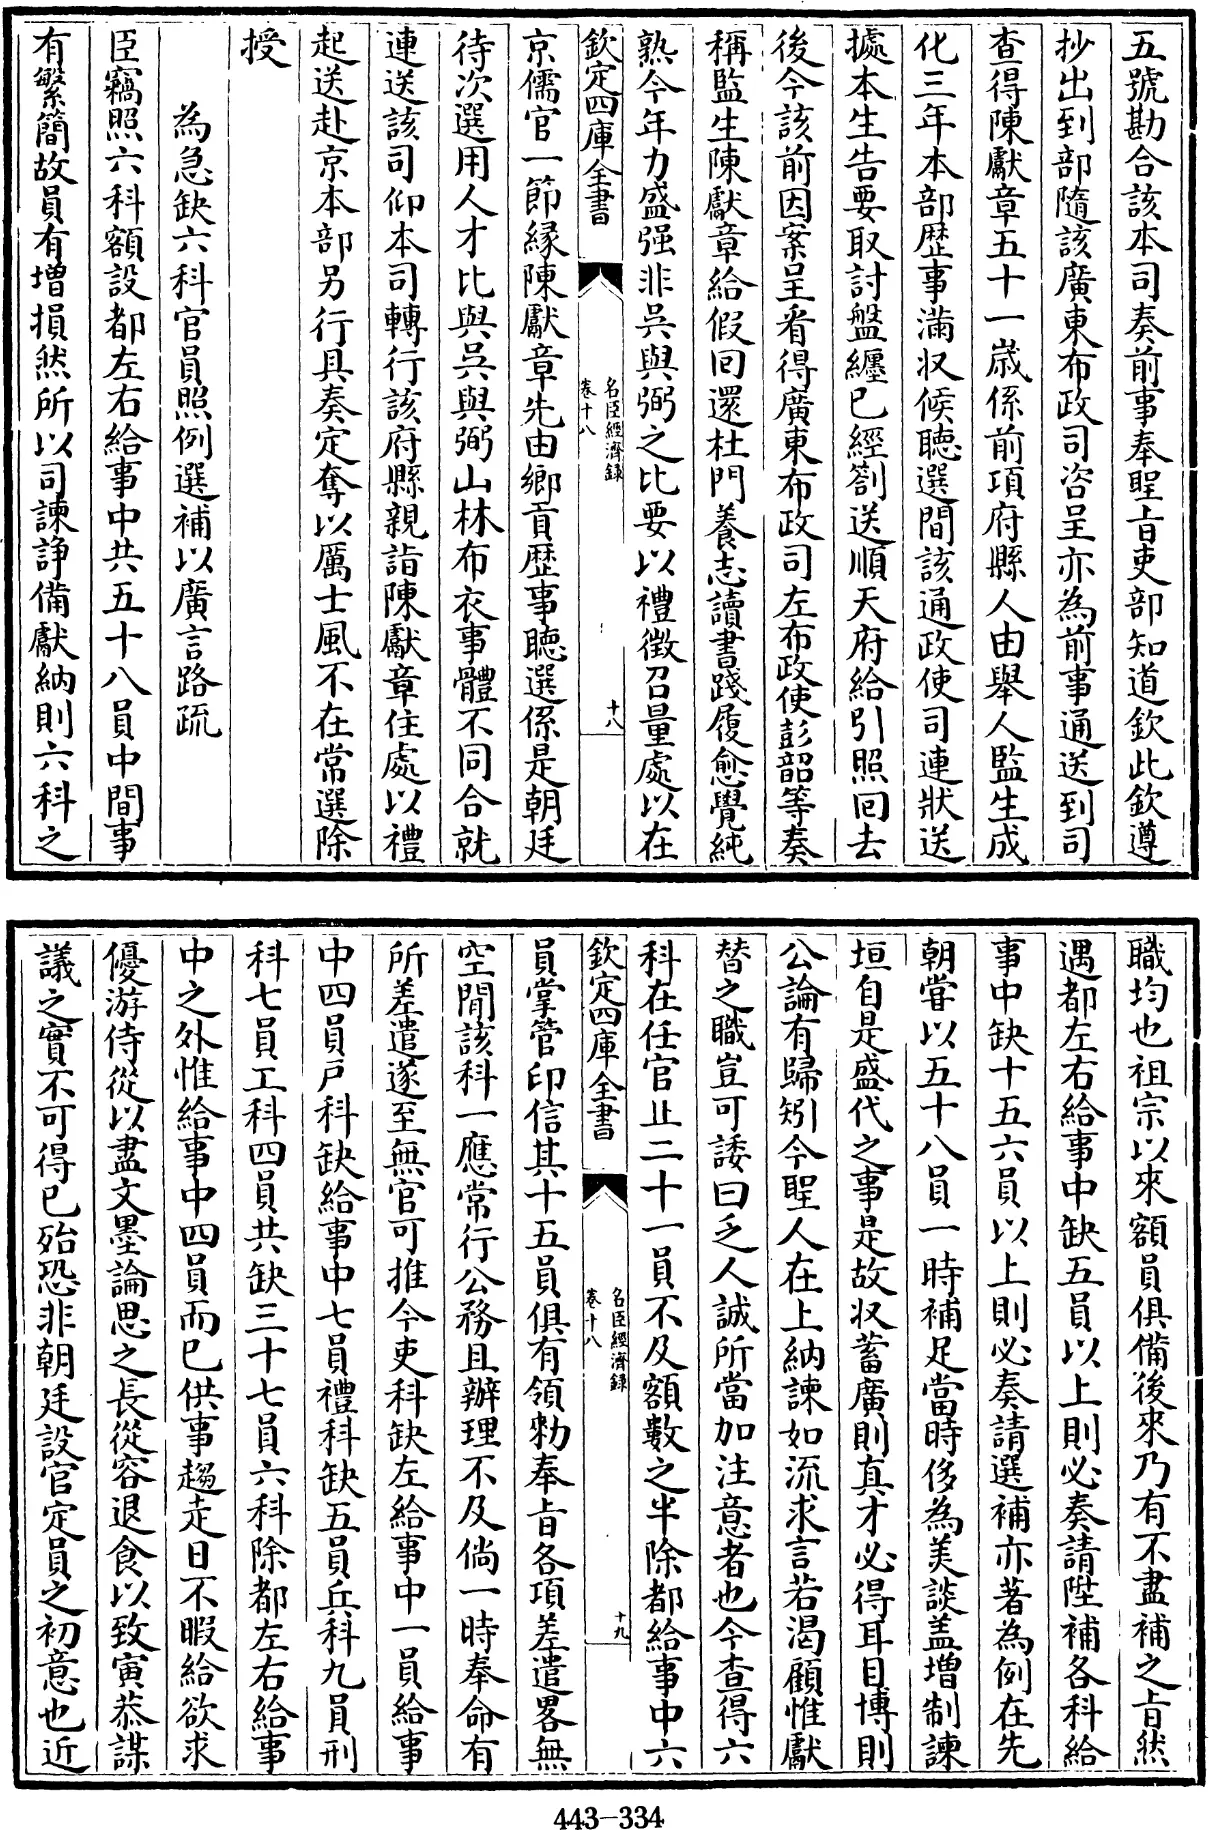 五號勘合該本司奏前事奉聖旨吏部知道欽此欽遵
抄出到部隨該廣東布政司咨呈亦為前事通送到司
查得陳獻章五十一歳係前項府縣人由舉人監生成
化三年本部歴事滿収候聽選間該通政使司連狀送
據本生告要取討盤纏已經劄送順天府給引照回去
後今該前因案呈看得廣東布政司左布政使彭韶等奏
稱監生陳獻章給假回還杜門養志讀書踐履愈覺純
熟今年力盛强非吳與弼之比要以禮徴召量處以在
欽定四庫全書
名臣經濟録
卷十八
十八
京儒官一節緣陳獻章先由鄉貢歴事聽選係是朝廷
待次選用人才比與吳與弼山林布衣事體不同合就
連送該司仰本司轉行該府縣親詣陳獻章住處以禮
起送赴京本部另行具奏定奪以厲士風不在常選除
授
為急缺六科官員照例選補以廣言路疏
臣竊照六科額設都左右給事中共五十八員中間事
有繁簡故員有增損然所以司諫諍備獻納則六科之
職均也祖宗以來額員俱備後來乃有不盡補之旨然
遇都左右給事中缺五員以上則必奏請陞補各科給
事中缺十五六員以上則必奏請選補亦著為例在先
朝嘗以五十八員一時補足當時侈為美談盖增制諫
垣自是盛代之事是故収蓄廣則真才必得耳目博則
公論有歸矧今聖人在上納諫如流求言若渴顧惟獻
替之職豈可諉曰乏人誠所當加注意者也今查得六
科在任官止二十一員不及額數之半除都給事中六
欽定四庫全書
名臣經濟録
卷十八
十九
員掌管印信其十五員俱有領勑奉旨各項差遣畧無
空間該科一應常行公務且辦理不及倘一時奉命有
所差遣遂至無官可推今吏科缺左給事中一員給事
中四員戸科缺給事中七員禮科缺五員兵科九員刑
科七員工科四員共缺三十七員六科除都左右給事
中之外惟給事中四員而已供事趨走日不暇給欲求
優游侍從以盡文墨論思之長從容退食以致寅恭謀
議之實不可得已殆恐非朝廷設官定員之初意也近
443-334